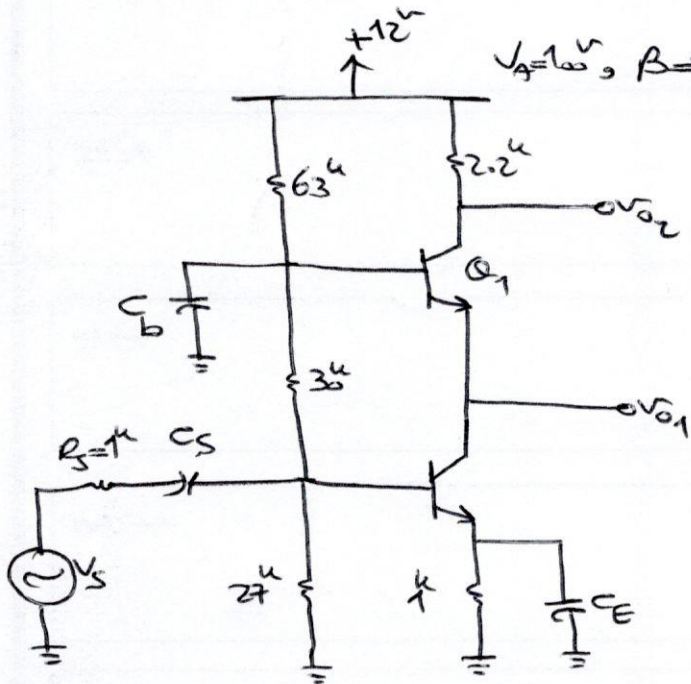 +12ᵛ
V_A=100ᵛ, β=
63ᵏ
2.2ᵏ
v_o2
Q_1
C_b
30ᵏ
v_o1
R_S=1ᵏ
C_S
V_S
27ᵏ
1ᵏ
C_E